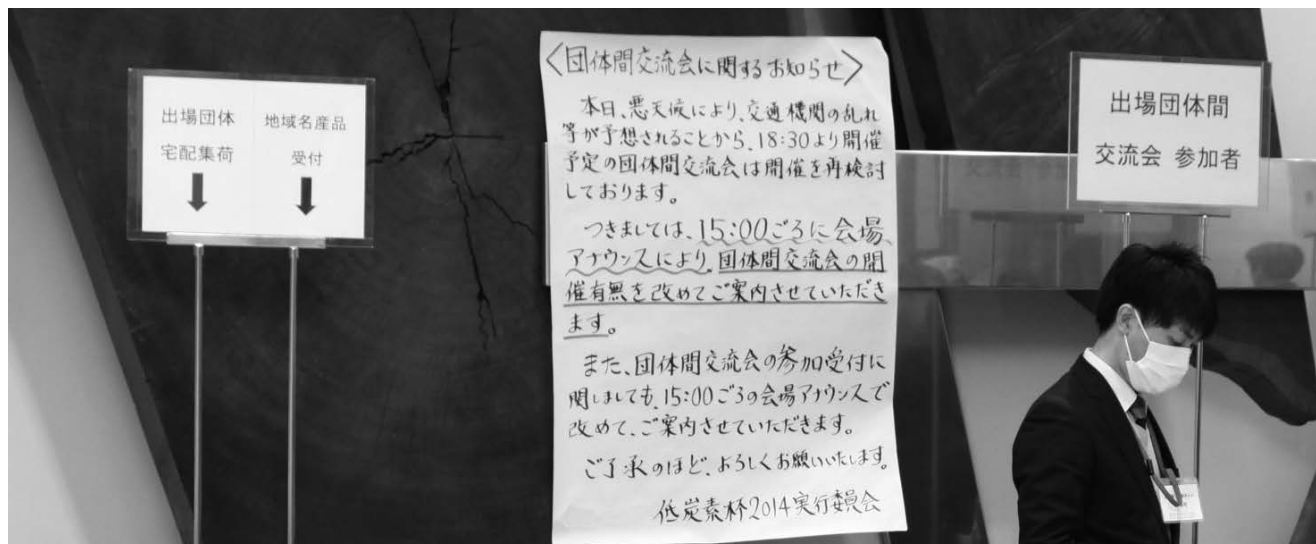 出場団体
宅配集荷
地域名産品
受付
<団体間交流会に関するお知らせ>
本日、悪天候により、交通機関の乱れ
等が予想されることから、18:30より開催
予定の団体間交流会は開催を再検討
しております。
つきましては、15:00ごろに会場
アナウンスにより、団体間交流会の開
催有無を改めてご案内させていただき
ます。
また、団体間交流会の参加受付に
関しましても、15:00ごろの会場アナウンスで
改めて、ご案内させていただきます。
ご了承のほど、よろしくお願いいたします。
低炭素杯2014実行委員会
出場団体間
交流会 参加者